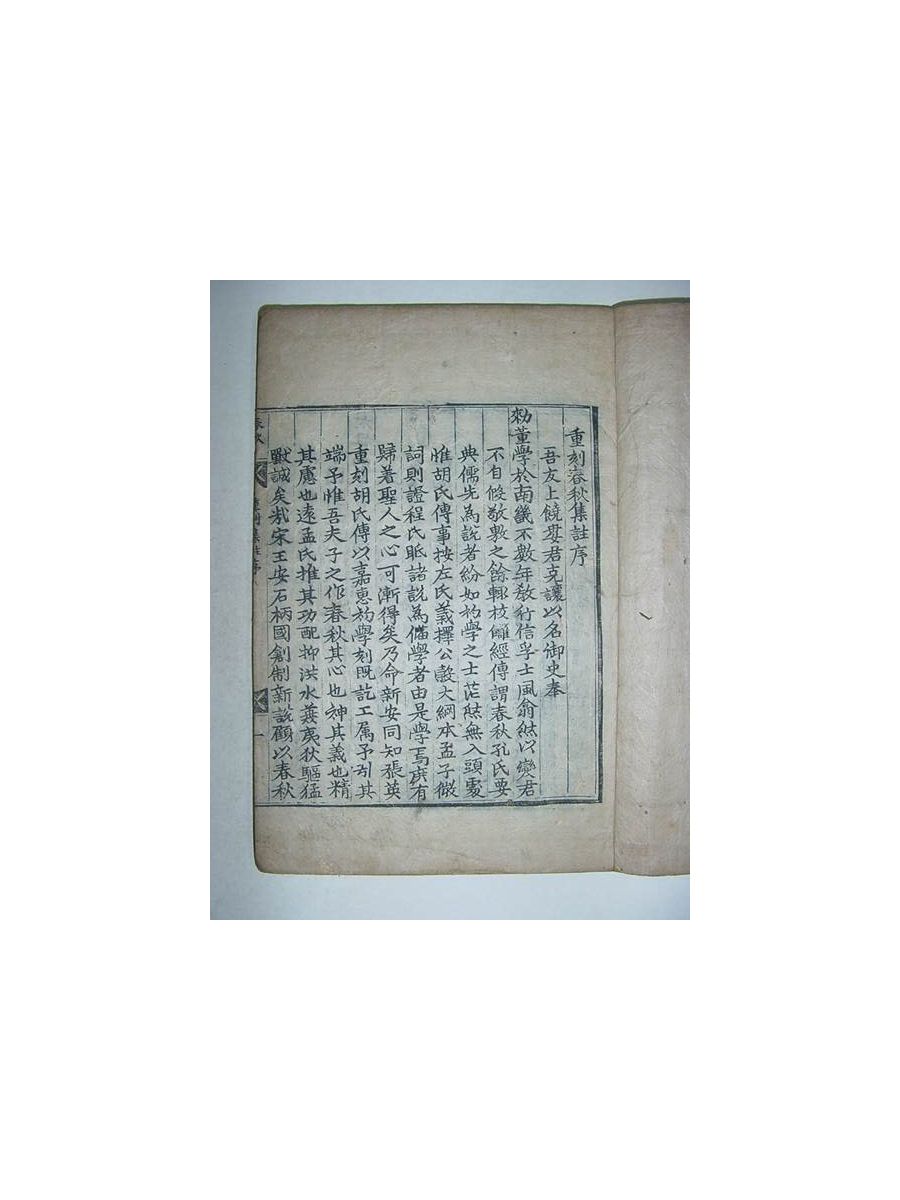 重刻春秋集註序
吾友上饒婁君克讓以名御史奉
勑董學於南畿不數年教行信孚士風翕然以變君
不自假敎數之餘輙校讎經傳謂春秋孔氏要
典儒先為說者紛如初學之士茫然無入頭處
惟胡氏傳事按左氏義擇公穀大綱本孟子微
詞則證程氏眡諸說為備學者由是學焉庶有
歸著聖人之心可漸得矣乃命新安同知張英
重刻胡氏傳以嘉惠初學刻既訖工属予引其
端予惟吾夫子之作春秋其心也神其義也精
其慮也遠孟氏推其功配抑洪水羙夷狄驅猛
獸誠矣哉宋王安石柄國創制新說顧以春秋
春秋
集註序
一